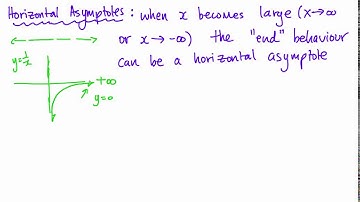 Horizontal Asymptotes : when x becomes large (x→∞
or x→ -∞) the "end" behaviour
can be a horizontal asymptote
y=1/x
+∞
y=0